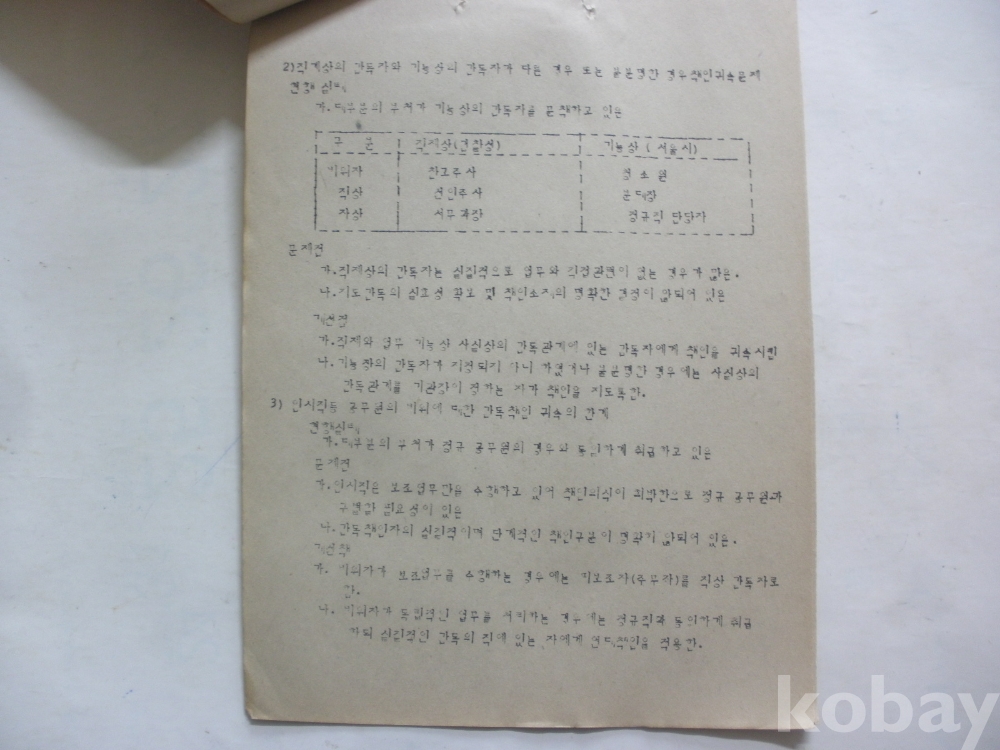 2)직제상의 감독자와 기능상의 감독자가 다른 경우 또는 불분명한 경우책임귀속문제
현행실태
가.대부분의 부처가 기능상의 감독자를 문책하고 있음
구 분 직제상(경찰청) 기능상 (서울시)
비위자 청소원
직상 선임주사 분대장
차상 서무과장 정규직 담당자
문제점
가.직제상의 감독자는 실질적으로 업무와 직접관련이 없는 경우가 많음.
나.지도감독의 실효성 확보 및 책임소재의 명확한 결정이 안되어 있음
가.직제와 업무 기능상 사실상의 감독관계에 있는 감독자에게 책임을 귀속시킴
나.기능상의 감독자가 지정되지 아니 하였거나 불분명한 경우에는 사실상의
감독관계를 기관장이 정하는 자가 책임을 지도록함.
3) 임시직등 공무원의 비위에 대한 감독책임 귀속의 한계
현행실태
가.대부분의 부처가 정규 공무원의 경우와 동일하게 취급하고 있음
문제점
가.임시직은 보조업무만을 수행하고 있어 책임의식이 희박함으로 정규 공무원과
구별할 필요성이 있음
나.감독책임자의 실질적이며 단계적인 책임구분이 명확히 안되어 있음.
개선책
가. 비위자가 보조업무를 수행하는 경우에는 피보조자(주무자)를 직상 감독자로
함.
나. 비위자가 독립적인 업무를 처리하는 경우에는 정규직과 동일하게 취급
하되 실질적인 감독의 직에 있는 자에게 연대책임을 적용함.
kobay